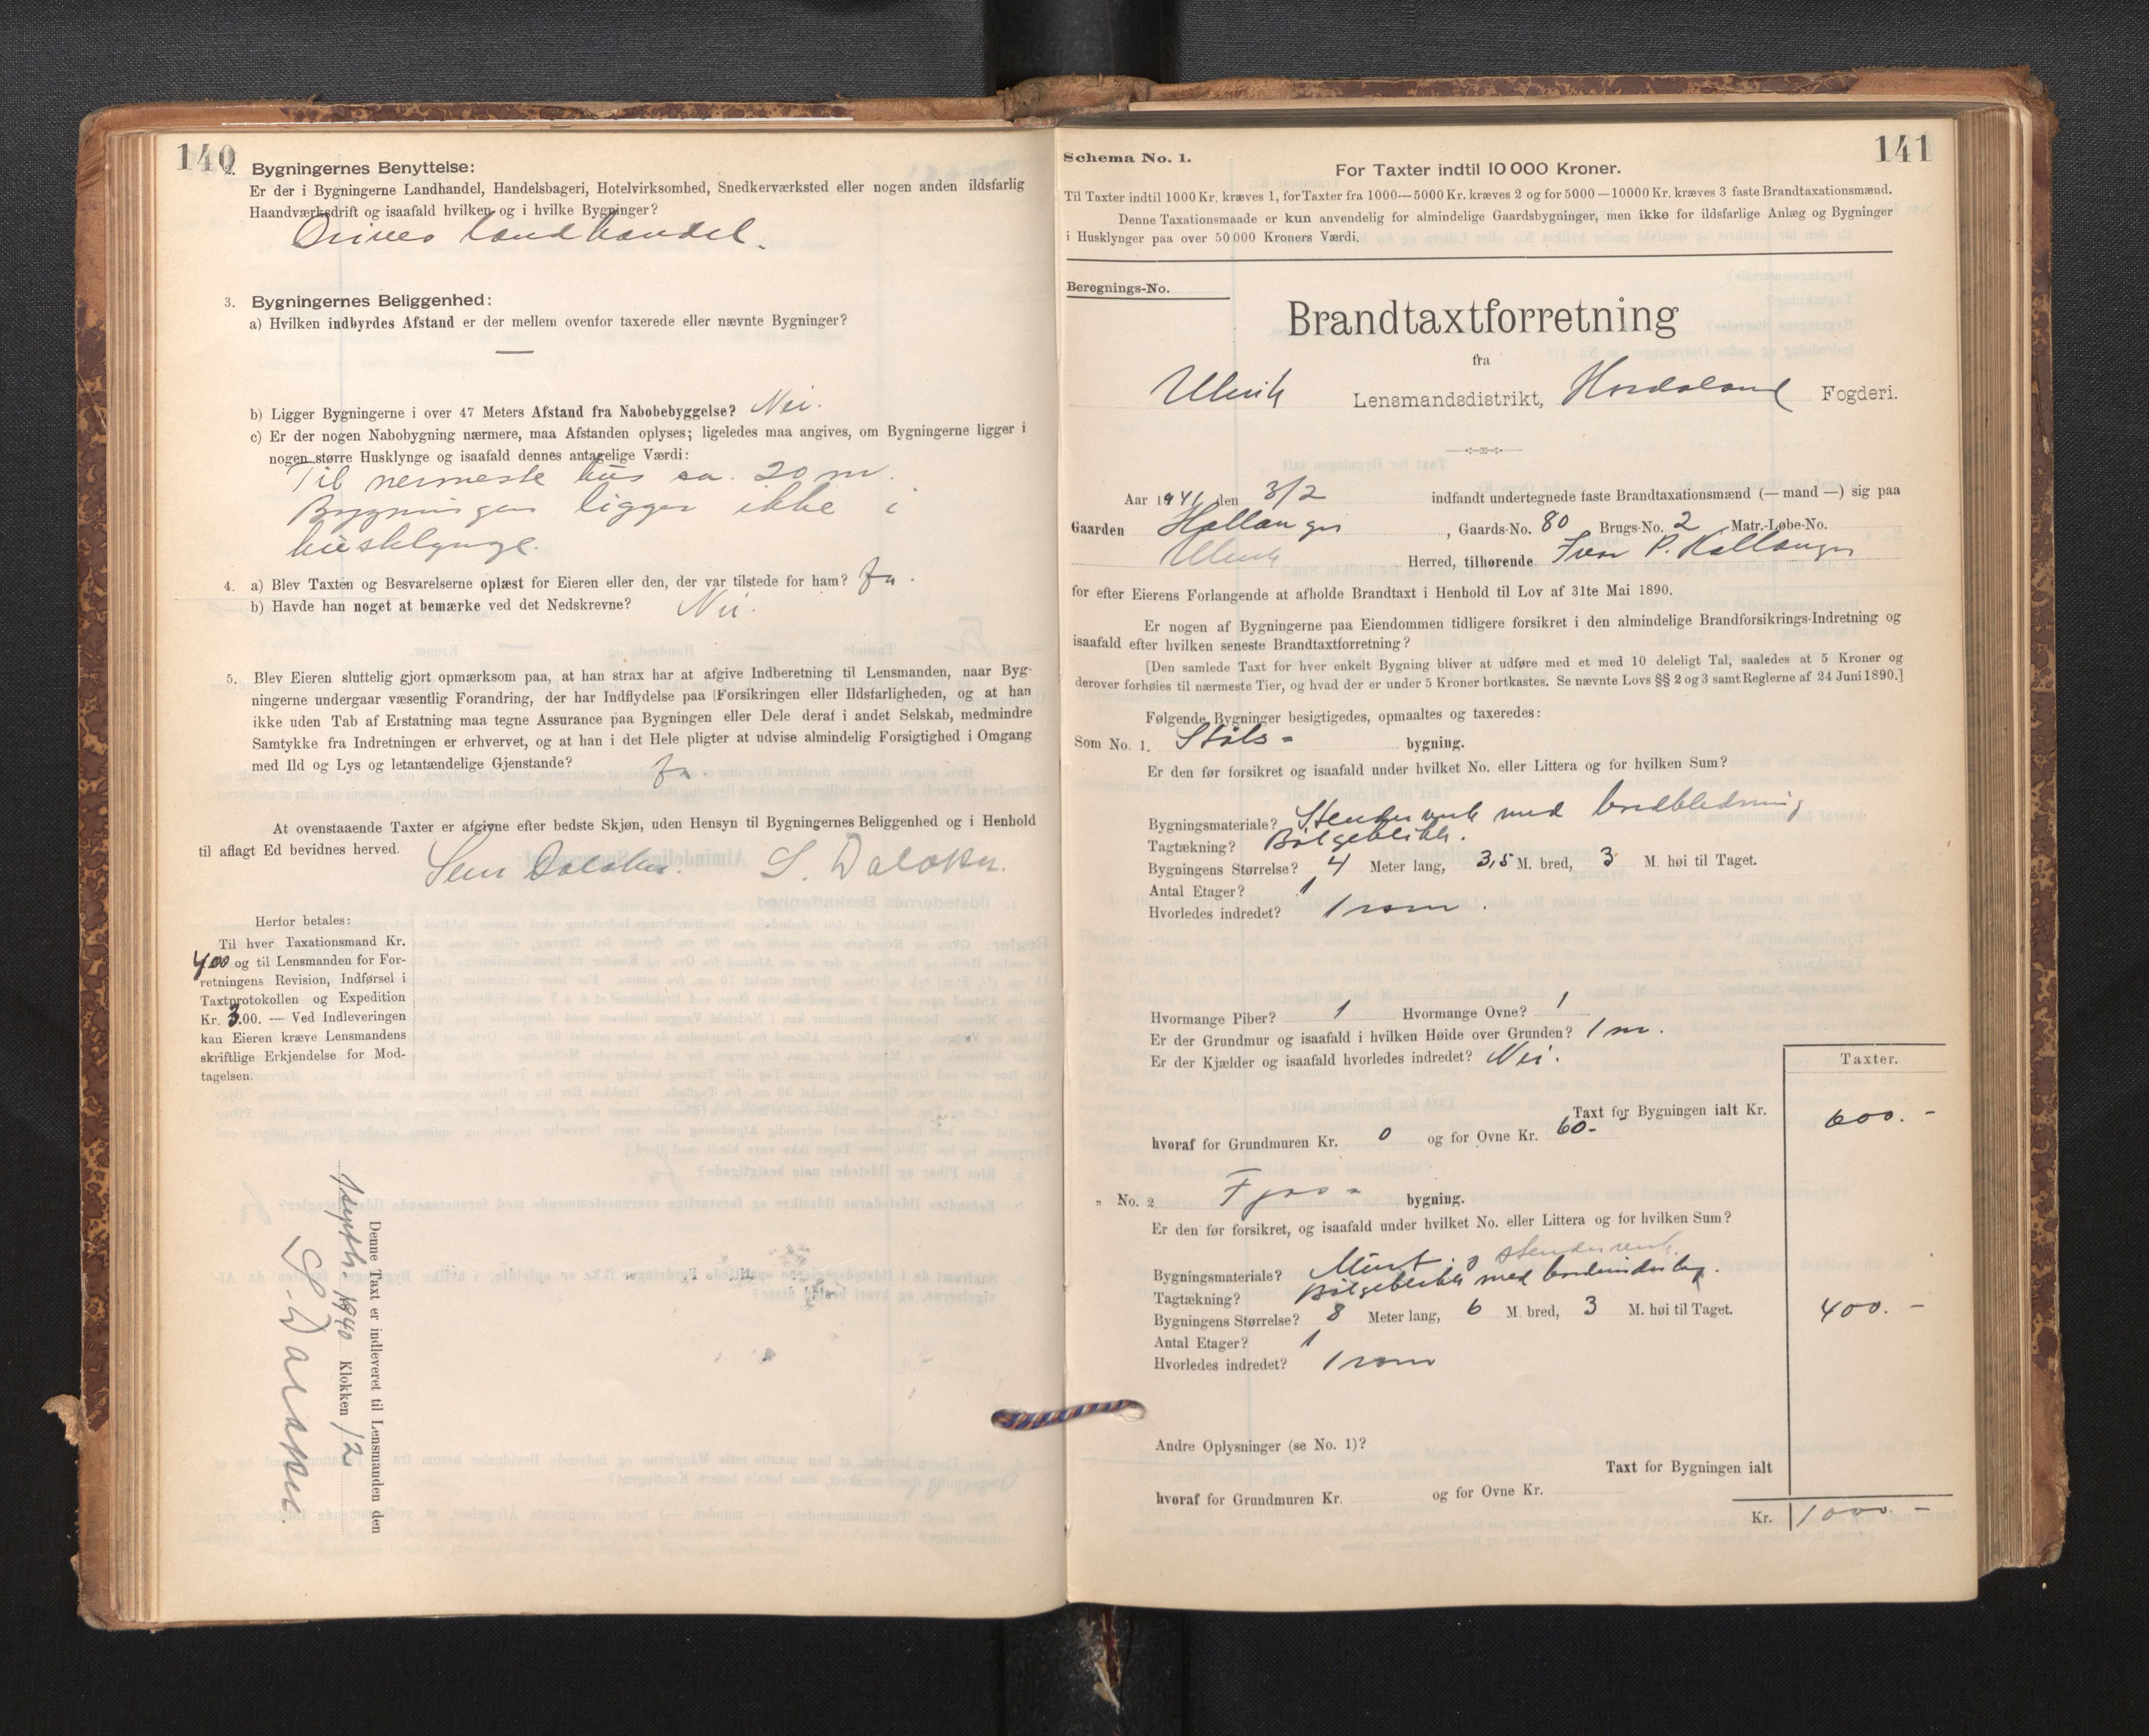 140
2. Bygningernes Benyttelse:
Er der i Bygningerne Landhandel, Handelsbageri, Hotelvirksomhed, Snedkerværksted eller nogen anden ildsfarlig
Haandværksdrift og isaafald hvilken og i hvilke Bygninger?
Drives landhandel.
3. Bygningernes Beliggenhed:
a) Hvilken indbyrdes Afstand er der mellem ovenfor taxerede eller nævnte Bygninger?
—
b) Ligger Bygningerne i over 47 Meters Afstand fra Nabobebyggelse? Nei.
c) Er der nogen Nabobygning nærmere, maa Afstanden oplyses; ligeledes maa angives, om Bygningerne ligger i
nogen større Husklynge og isaafald dennes antagelige Værdi:
Til nermeste hus ca. 20 m.
Bygningen ligger ikke i
husklynge.
4. a) Blev Taxten og Besvarelserne oplæst for Eieren eller den, der var tilstede for ham? Ja.
b) Havde han noget at bemærke ved det Nedskrevne? Nei.
5. Blev Eieren sluttelig gjort opmærksom paa, at han strax har at afgive Indberetning til Lensmanden, naar Byg-
ningerne undergaar væsentlig Forandring, der har Indflydelse paa Forsikringen eller Ildsfarligheden, og at han
ikke uden Tab af Erstatning maa tegne Assurance paa Bygningen eller Dele deraf i andet Selskab, medmindre
Samtykke fra Indretningen er erhvervet, og at han i det Hele pligter at udvise almindelig Forsigtighed i Omgang
med Ild og Lys og letantændelige Gjenstande? Ja.
At ovenstaaende Taxter er afgivne efter bedste Skjøn, uden Hensyn til Bygningernes Beliggenhed og i Henhold
til aflagt Ed bevidnes herved.
S. Daloker.
Herfor betales:
Til hver Taxationsmand Kr.
4.00 og til Lensmanden for For-
retningens Revision, Indførsel i
Taxtprotokollen og Expedition
Kr. 3.00. — Ved Indleveringen
kan Eieren kræve Lensmandens
skriftlige Erkjendelse for Mod-
tagelsen.
Denne Taxt er indleveret til Lensmanden den
1940 Klokken 12
S. Daloker.
141
Schema No. 1.
For Taxter indtil 10 000 Kroner.
Til Taxter indtil 1000 Kr. kræves 1, for Taxter fra 1000—5000 Kr. kræves 2 og for 5000—10000 Kr. kræves 3 faste Brandtaxationsmænd.
Denne Taxationsmaade er kun anvendelig for almindelige Gaardsbygninger, men ikke for ildsfarlige Anlæg og Bygninger
i Husklynger paa over 50 000 Kroners Værdi.
Beregnings-No.
Brandtaxtforretning
fra
Ulvik Lensmandsdistrikt, Hordaland Fogderi.
Aar 1941 den 3/2 indfandt undertegnede faste Brandtaxationsmænd (— mand —) sig paa
Gaarden Hallanger, Gaards-No. 80 Brugs-No. 2 Matr.-Løbe-No.
Ulvik Herred, tilhørende Iver P. Hallanger
for efter Eierens Forlangende at afholde Brandtaxt i Henhold til Lov af 31te Mai 1890.
Er nogen af Bygningerne paa Eiendommen tidligere forsikret i den almindelige Brandforsikrings-Indretning og
isaafald efter hvilken seneste Brandtaxtforretning?
[Den samlede Taxt for hver enkelt Bygning bliver at udføre med et med 10 deleligt Tal, saaledes at 5 Kroner og
derover forhøies til nærmeste Tier, og hvad der er under 5 Kroner bortkastes. Se nævnte Lovs §§ 2 og 3 samt Reglerne af 24 Juni 1890.]
Følgende Bygninger besigtigedes, opmaaltes og taxeredes:
Som No. 1. Støls- bygning.
Er den før forsikret og isaafald under hvilket No. eller Littera og for hvilken Sum?
Bygningsmateriale? Stenderverk med bordkledning
Tagtækning? Bølgeblikk.
Bygningens Størrelse? 4 Meter lang, 3,5 M. bred, 3 M. høi til Taget.
Antal Etager? 1
Hvorledes indredet? 1 rom.
Hvormange Piber? 1 Hvormange Ovne? 1
Er der Grundmur og isaafald i hvilken Høide over Grunden? 1 m.
Er der Kjælder og isaafald hvorledes indredet? Nei.
Taxter.
Taxt for Bygningen ialt Kr. 600.-
hvoraf for Grundmuren Kr. 0 og for Ovne Kr. 60.-
„ No. 2 Fjos- bygning.
Er den før forsikret, og isaafald under hvilket No. eller Littera og for hvilken Sum?
Bygningsmateriale? Murt og stenderverk.
Tagtækning? Bølgeblikk med bordunderlag.
Bygningens Størrelse? 8 Meter lang, 6 M. bred, 3 M. høi til Taget. 400.-
Antal Etager? 1
Hvorledes indredet? 1 rom
Andre Oplysninger (se No. 1)?
Taxt for Bygningen ialt
hvoraf for Grundmuren Kr. og for Ovne Kr.
Kr. 1000.-